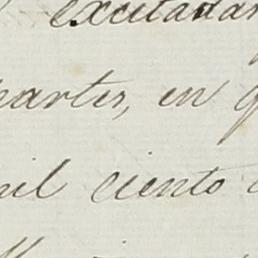 excitadar
partes, en q
mil ciento